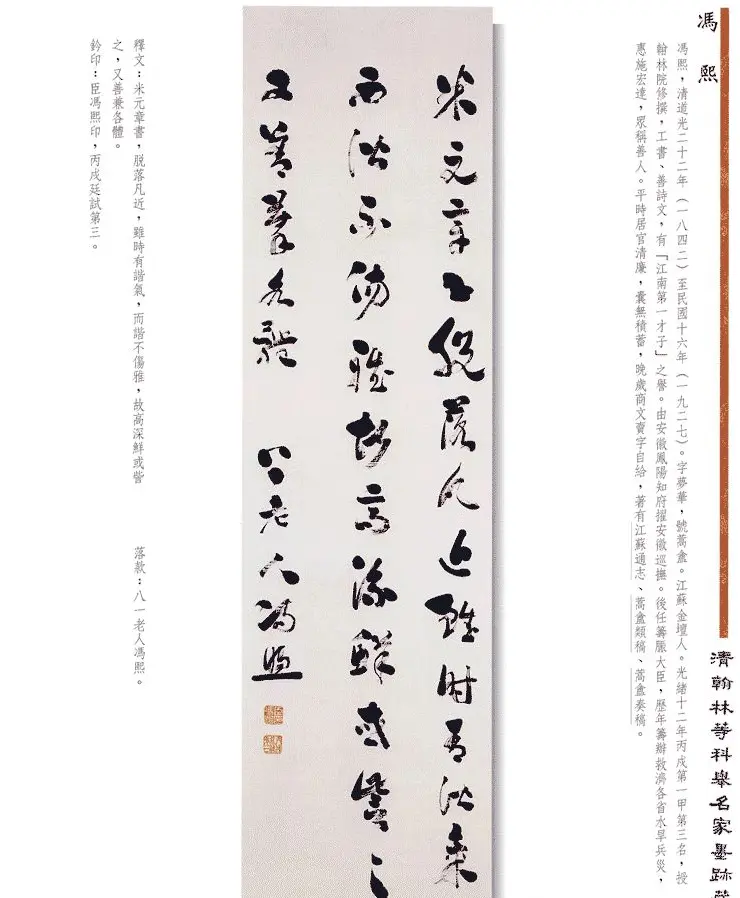 馮熙
清翰林等科舉名家墨跡
馮熙,清道光二十二年(一八四二)至民國十六年(一九二七)。字夢華,號蒿盦。江蘇金壇人。光緒十二年丙戌第一甲第三名,授
翰林院修撰,工書、善詩文,有「江南第一才子」之譽。由安徽鳳陽知府擢安徽巡撫。後任籌賑大臣,歷年籌辦救濟各省水旱兵災,
惠施宏達,眾稱善人。平時居官清廉,囊無積蓄,晚歲商文賣字自給,著有江蘇通志、蒿盦類稿、蒿盦奏稿。
米元章書脫落凡近雖時有諧氣
而諧不傷雅故高深鮮或訾之
又善兼各體 八一老人馮熙
釋文:米元章書,脫落凡近,雖時有諧氣,而諧不傷雅,故高深鮮或訾
之,又善兼各體。
落款:八一老人馮熙。
鈐印:臣馮熙印,丙戌廷試第三。